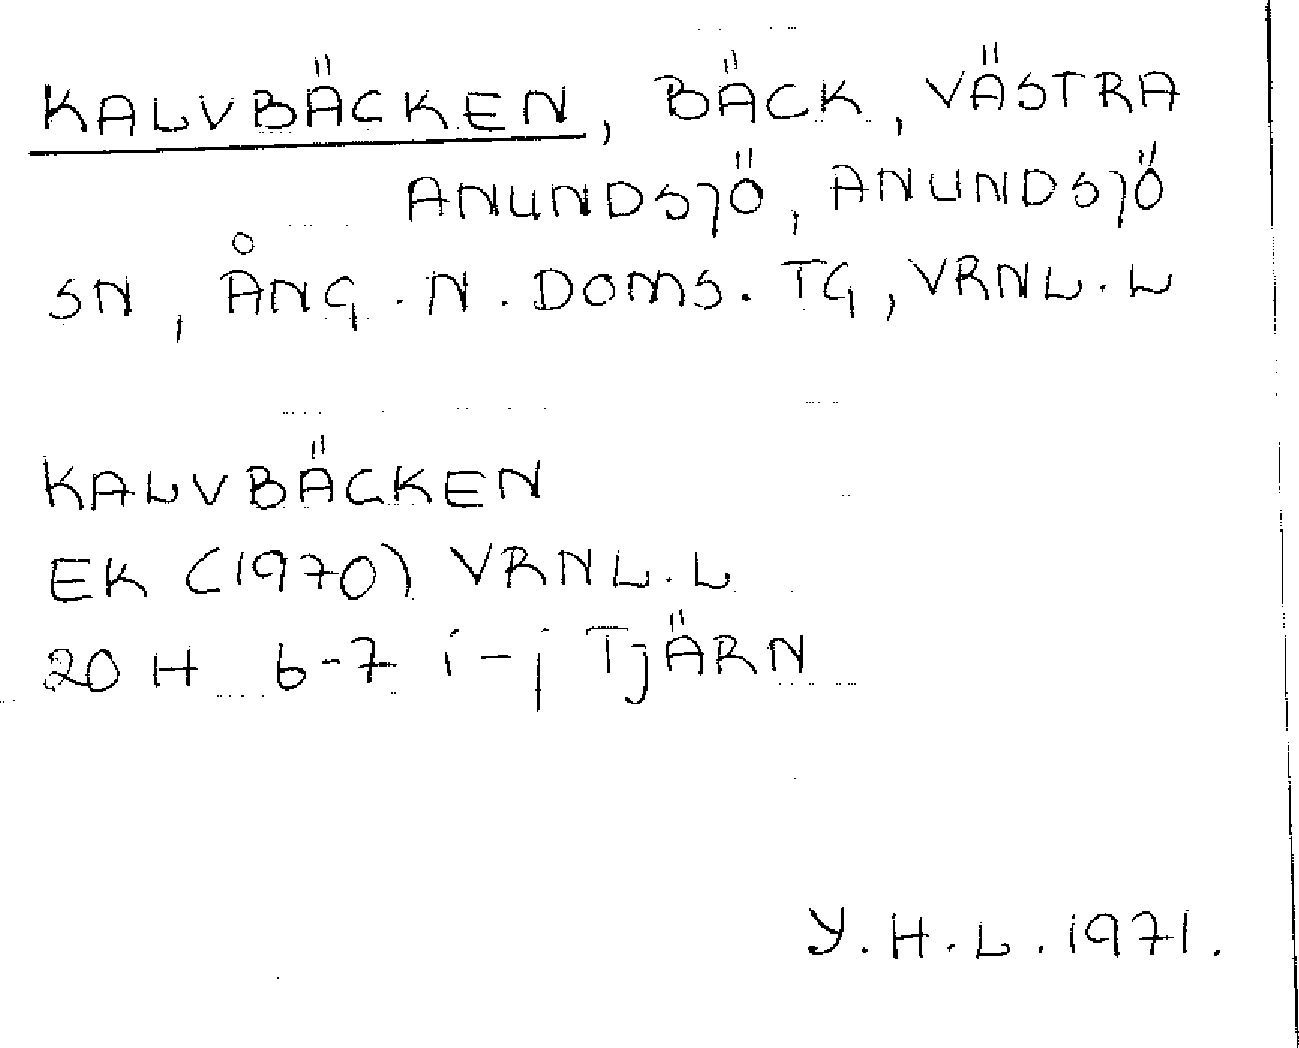 KALVBÄCKEN, BÄCK, VÄSTRA
ANUNDSJÖ, ANUNDSJÖ
SN, ÅNG. N. DOMS. TG, VRNL. L
KALVBÄCKEN
EK (1970) VRNL. L
20 H 6-7 i-j TjÄRN
Y. H. L. 1971.